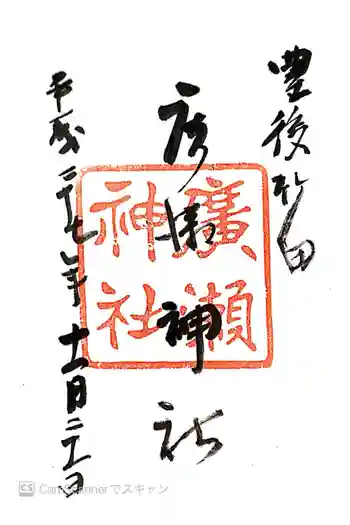 豊後竹田
廣瀬神社
廣瀬
神社
平成二十七年十一月二十二日
CS CamScannerでスキャン